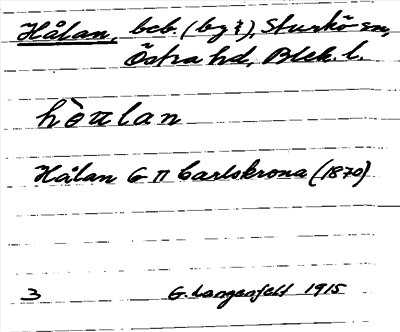 Hålan, beb. (by?), Sturkö sn,
Östra hd, Blek. l.
hὲɯlan
Hålan G π Carlskrona (1870)
3 G. Langenfelt 1915